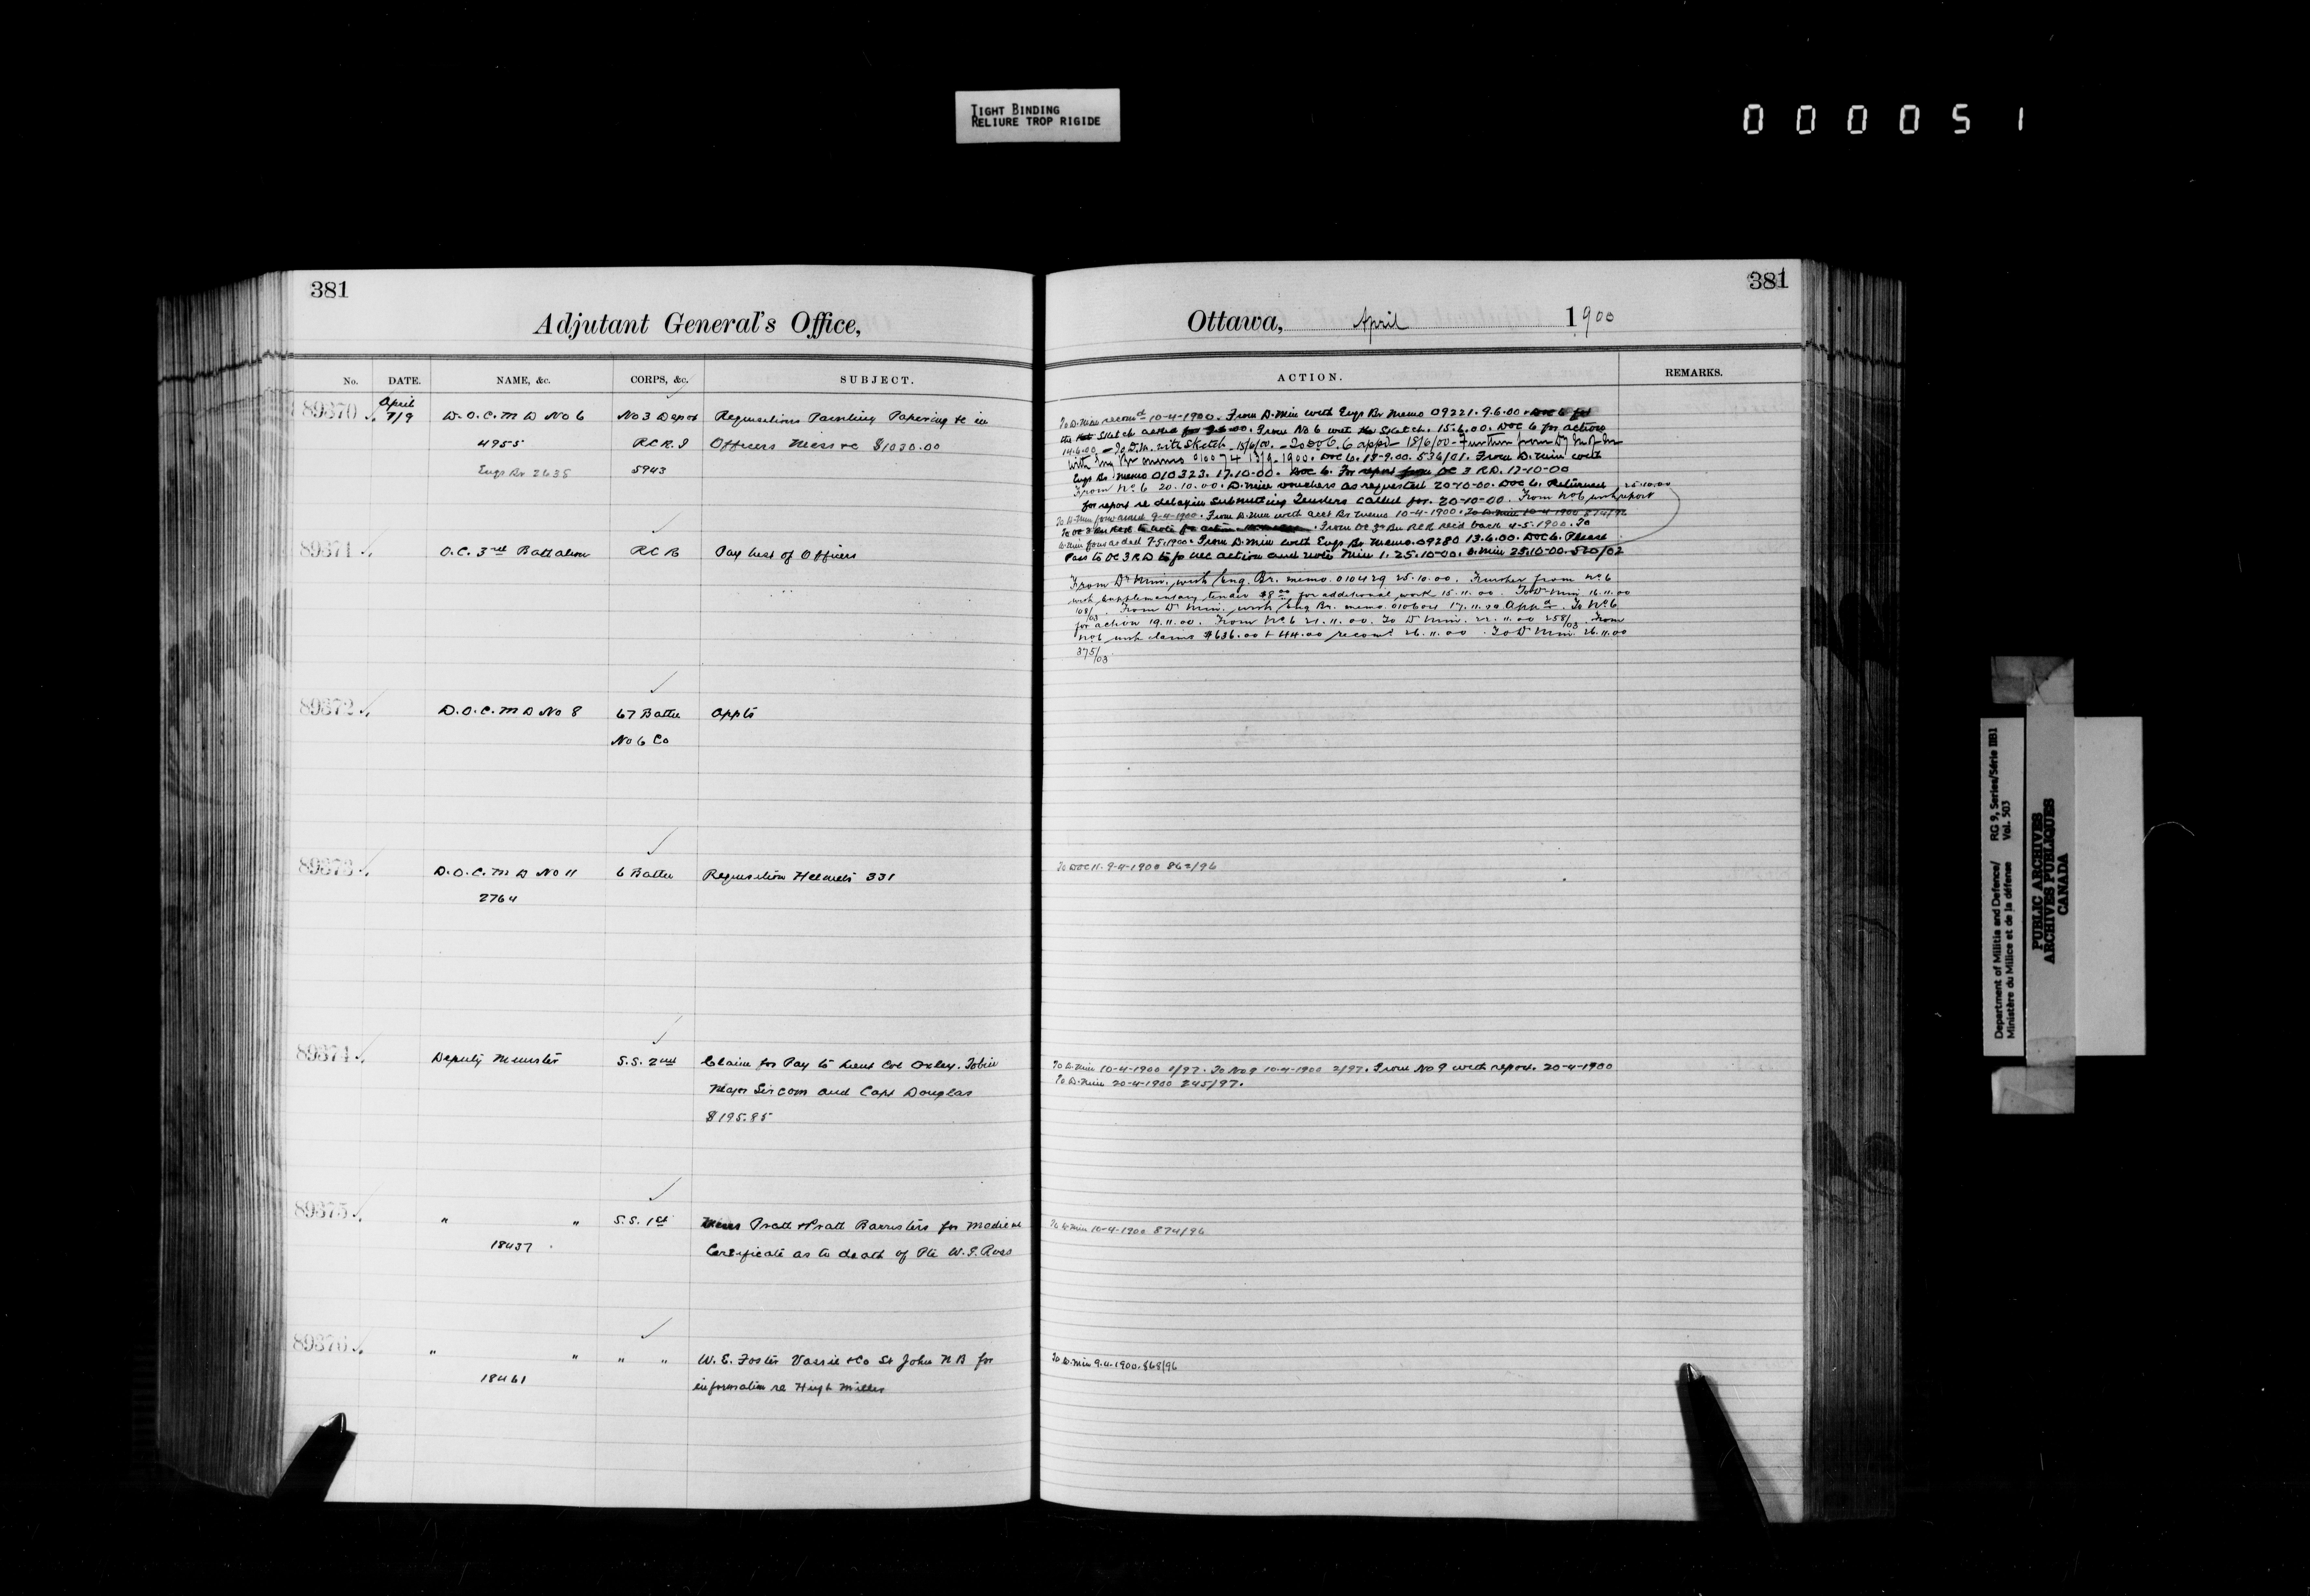 TIGHT BINDING
RELIURE TROP RIGIDE
000051
381
381
Adjutant General's Office,
Ottawa, April 1900
No.
DATE.
NAME, &c.
CORPS, &c.
SUBJECT.
ACTION.
REMARKS.
April
89370 7/9 D.O.C. M D No 6 No 3 Depot Requisitions Painting Papering &c in
4955 RCR I Officers Mess &c $1030.00
Engs Br 2635 5943
To D.Min recomd 10-4-1900. From D.Min with Engs Br Memo 09221. 9.6.00. DOC 6 for
the Sketch asked for 9-6-00. From No 6 with the Sketch. 15.6.00. DOC 6 for action
14.6.00 - To D.M. with Sketch - 15/6/00. - To DOC 6 appd - 18/6/00 - Further from
with Eng Br memo 010074 1900. DOC 6. 18-9.00. 536/01. From D.Min with
Engs Br. Memo 010323. 17.10-00. DOC 6. For report from OC 3 RD. 17-10-00
From No 6 20.10.00. D.Min vouchers as requested 20-10-00. DOC 6. Returned 25.10.00
for report re delay in submitting Tenders called for. 20-10-00. From No 6 with report
To D.Min forwarded 9-4-1900. From D.Min with acct Br Memo 10-4-1900. To D.Min 10-4-1900 874/96
From OC 3rd Bn RCR rec'd back 4-5-1900. To
D.Min forwarded 7-5-1900. From D.Min with Engs Br Memo. 09280 13.6.00. DOC 6. Please
Pass to OC 3 RD to action and note Min 1. 25.10-00. D.Min 25.10-00. 520/02
89371 O.C. 3rd Battalion RCR Pay list of Officers
From Dy Min. with Eng. Br. memo. 010429 25.10.00. Further from No 6
with Supplementary tender $8.00 for additional work 15.11.00. To Dy Min. 16.11.00
108/03. From Dy Min. with Eng Br. memo. 17.11.00 Appd. To No 6
for action 19.11.00. From No 6 21.11.00. To Dy Min. 22.11.00 258/03. From
No 6 with claims $636.00 + 44.00 recomd 26.11.00. To Dy Min. 26.11.00
375/03
89372 D.O.C. M D No 8 67 Battn Appts
No 6 Co
89373 D.O.C. M D No 11 6 Battn Requisition Helmets 331
2764
To DOC 11. 9-4-1900 862/96
89374 Deputy Minister S.S. 2nd Claim for Pay to Lieut Col Oxley. Tobin
Major Sircom and Capt Douglas
$195.85
To D.Min 10-4-1900 2/97. To No 9 10-4-1900 2/97. From No 9 with report. 20-4-1900
To D.Min 20-4-1900 245/97.
89375 " " S.S. 1st Messrs Pratt & Pratt Barristers for Medical
18437 Certificate as to death of Pte W.J. Ross
To D.Min 10-4-1900 874/96
89376 " " " " W. E. Foster Vassie & Co St John N B for
18461 information re Hugh Miller
To D.Min 9.4.1900. 868/96
Department of Militia and Defence/ RG 9, Series/Série IIB1
Ministère du Milice et de la défense Vol. 503
PUBLIC ARCHIVES
ARCHIVES PUBLIQUES
CANADA